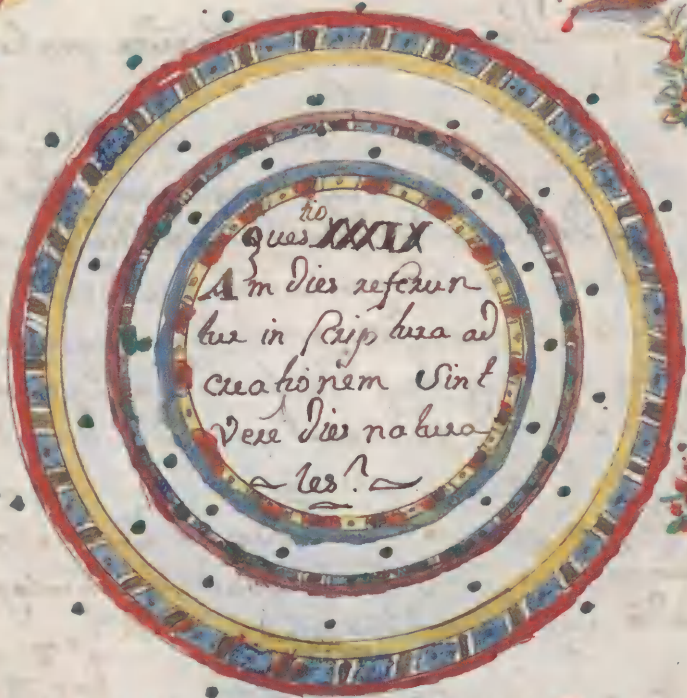 Questio XXXIX
Am dies referun
tur in scriptura ad
creationem Sint
vere dies natura
les?